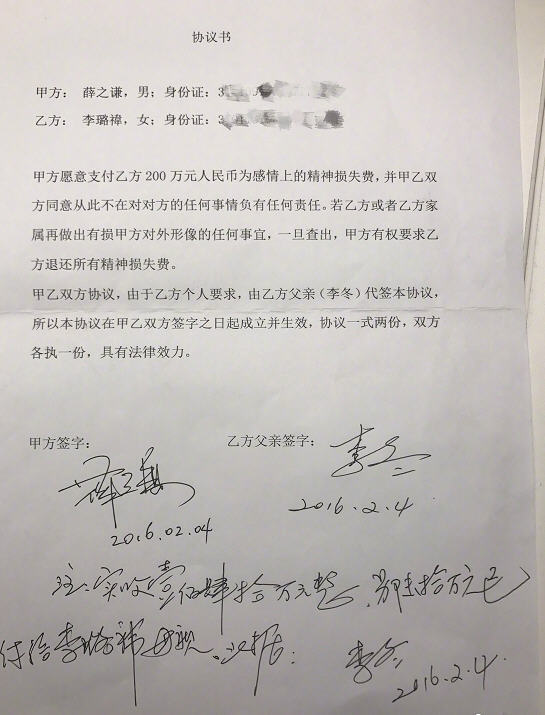 协议书
甲方： 薛之谦，男；身份证：3
乙方： 李璐禕，女；身份证：3
甲方愿意支付乙方 200 万元人民币为感情上的精神损失费，并甲乙双
方同意从此不在对对方的任何事情负有任何责任。若乙方或者乙方家
属再做出有损甲方对外形像的任何事宜，一旦查出，甲方有权要求乙
方退还所有精神损失费。
甲乙双方协议，由于乙方个人要求，由乙方父亲（李冬）代签本协议，
所以本协议在甲乙双方签字之日起成立并生效，协议一式两份，双方
各执一份，具有法律效力。
甲方签字： 乙方父亲签字：
薛之谦 李冬
2016.02.04 2016.2.4
注：实收壹佰肆拾万元整，拾万元已
付给李璐禕母亲。收据：李冬
2016.2.4.